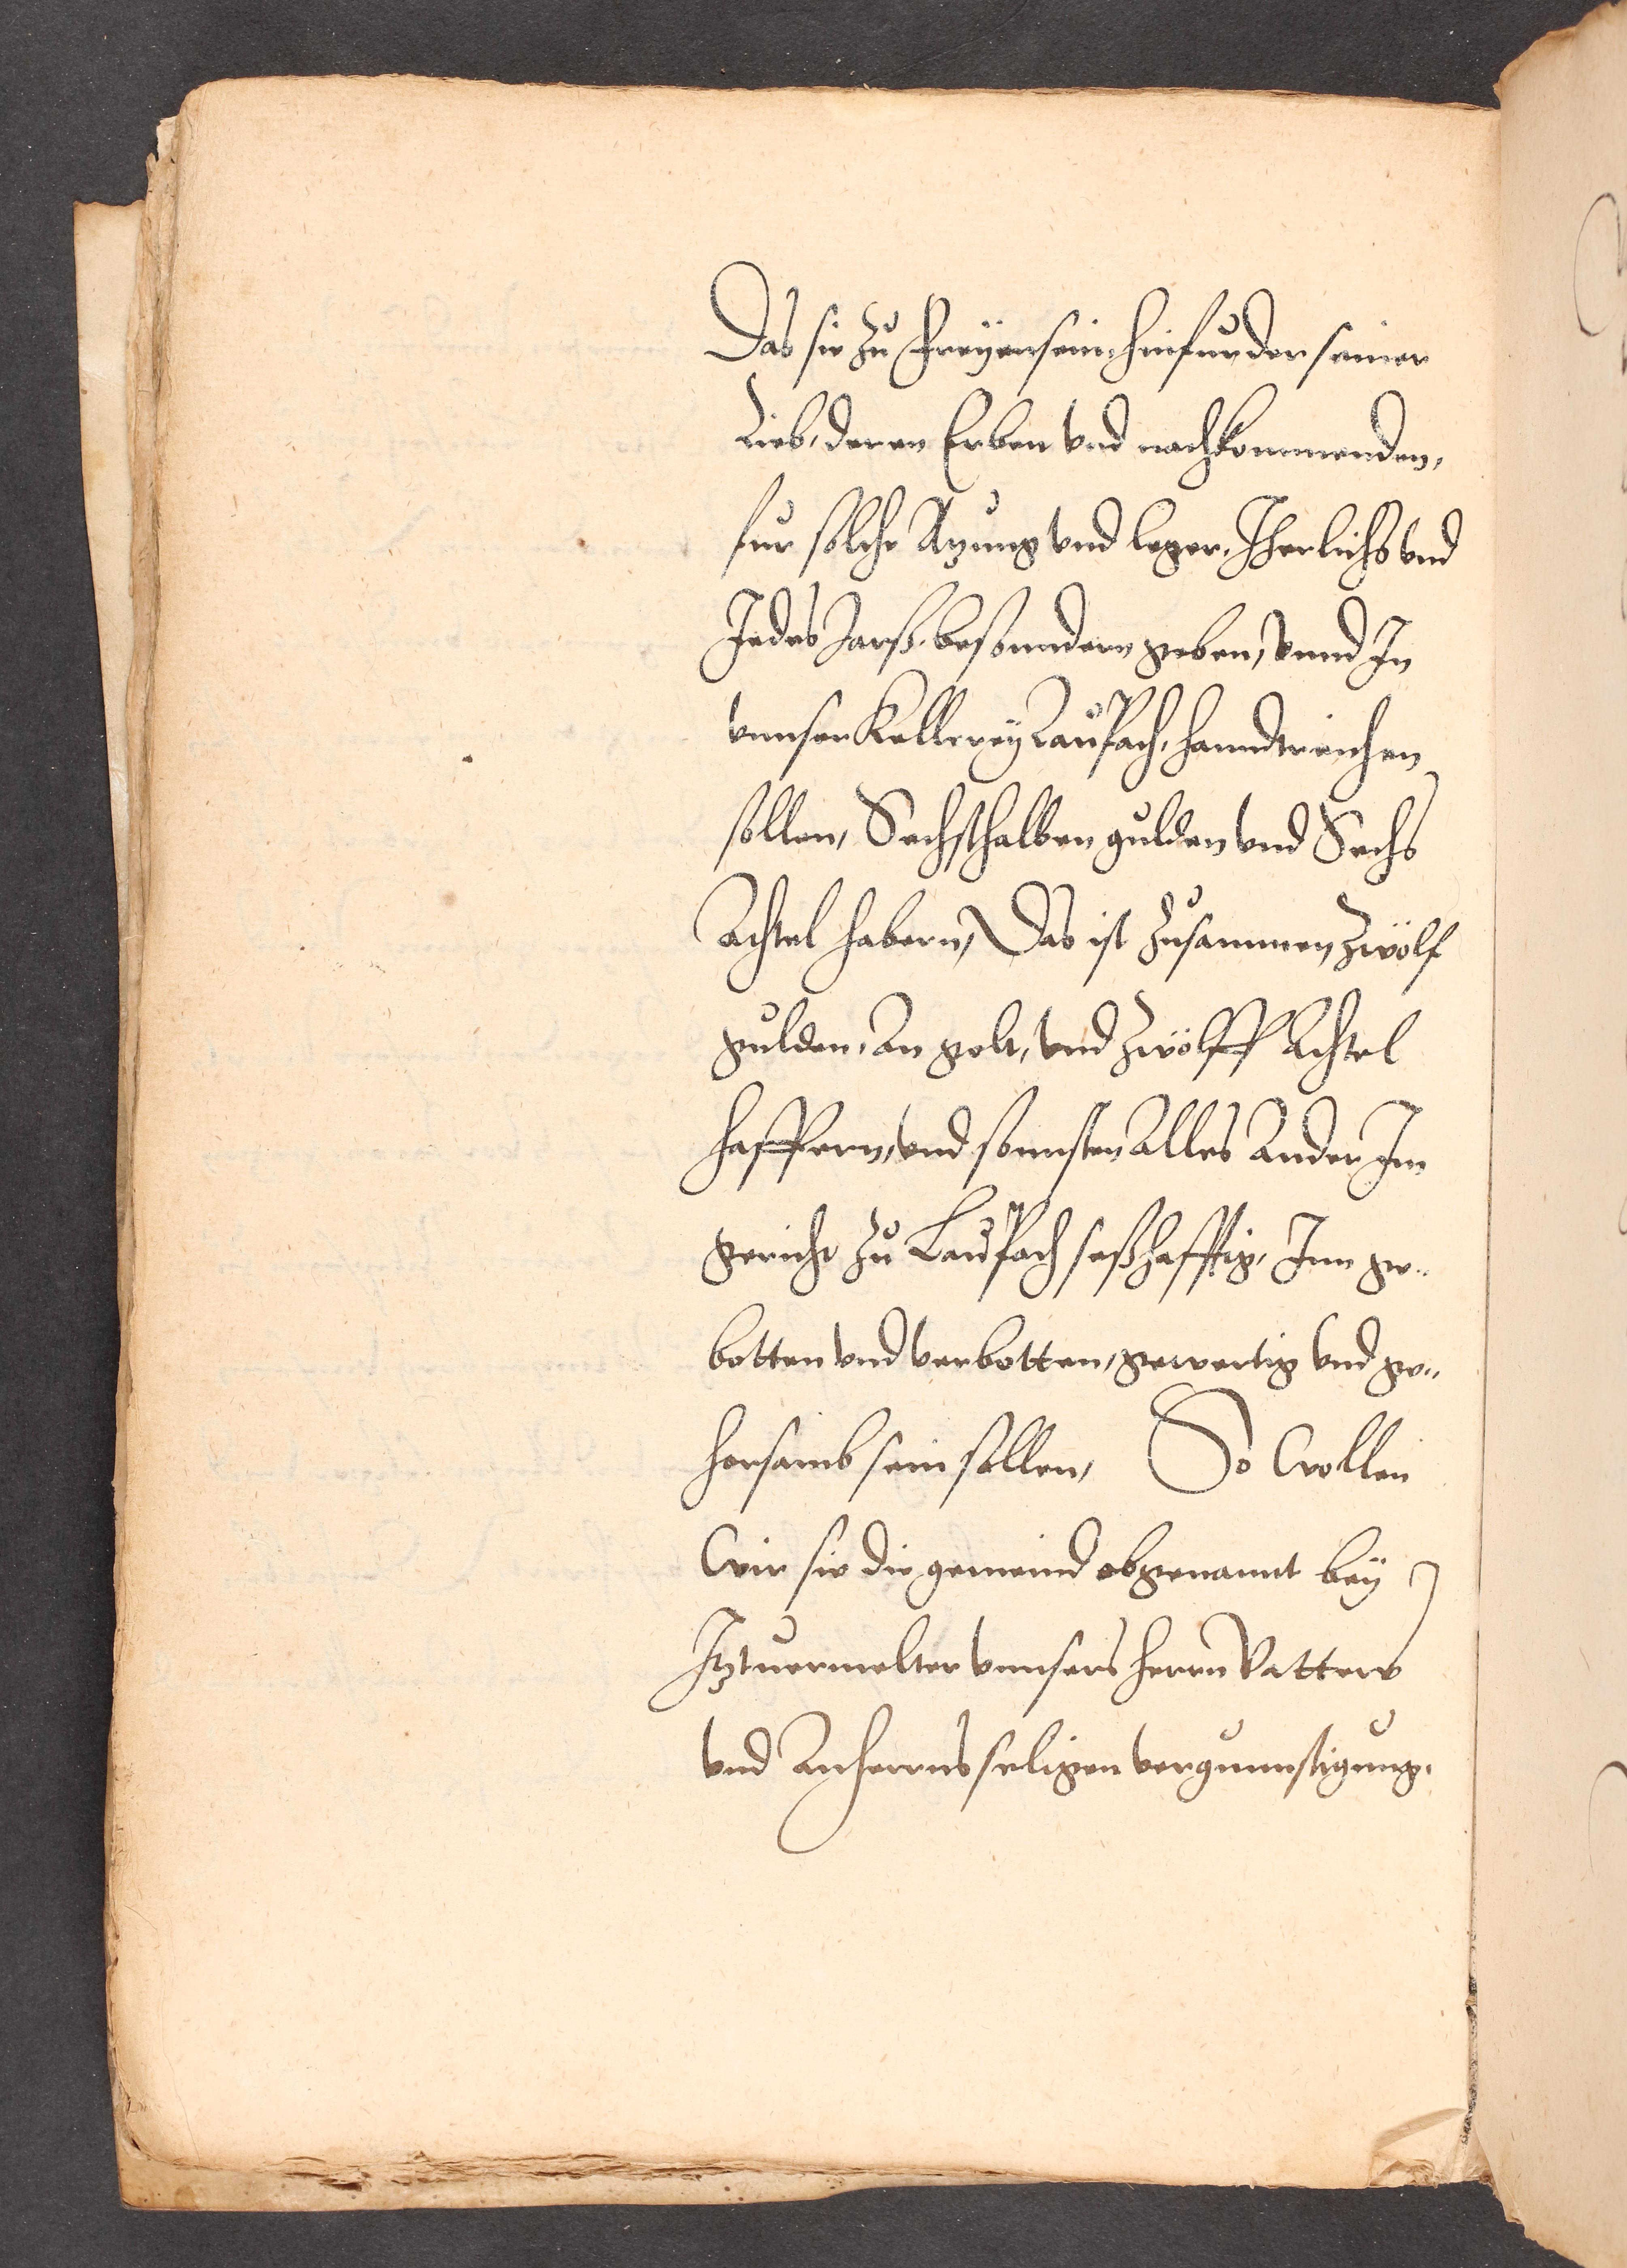 Das sie zu Freyenseen, hinfurder seiner
Lieb, deren Erben vnd nachkommenden,
fur solche Atzung vnd leger, Jherlichs vnd
Jedes Jarß, besonndern geben, vnnd In
vnnser Kellerey Laupach, hanndtreichen
sollen, Sechsthalben gulden vnd Sechs
Achtel habern, Das ist zusammen zwölf
gulden, An gelt, vnd zwölff Achtel
haffern, vnd sonnsten Alles Ander Im
gericht zu Laupach seßhafftig, Inn ge-
botten vnd verbotten, gewertig vnd ge-
horsamb sein sollen, So wollen
wir sie die gemeind obgenannt bey
Itztuermelter vnnsers herrn Vatters
vnd Anherrns seligen vergunnstigung,